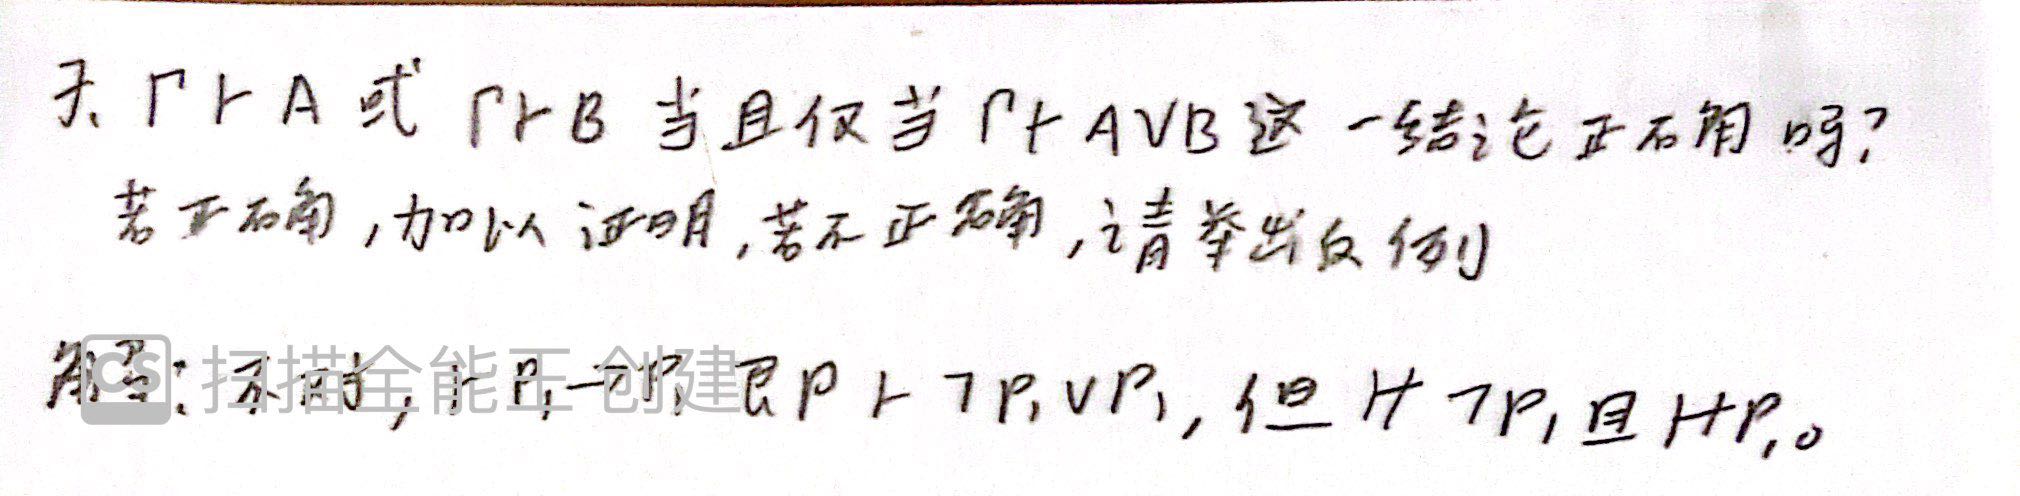 天、Γ⊢A 或 Γ⊢B 当且仅当 Γ⊢A∨B 这一结论正确吗?
若正确,加以证明,若不正确,请举出反例
解:不对,⊢P₁→P₁ 即 ⊢¬P₁∨P₁,但⊬¬P₁且⊬P₁。
CS 扫描全能王 创建